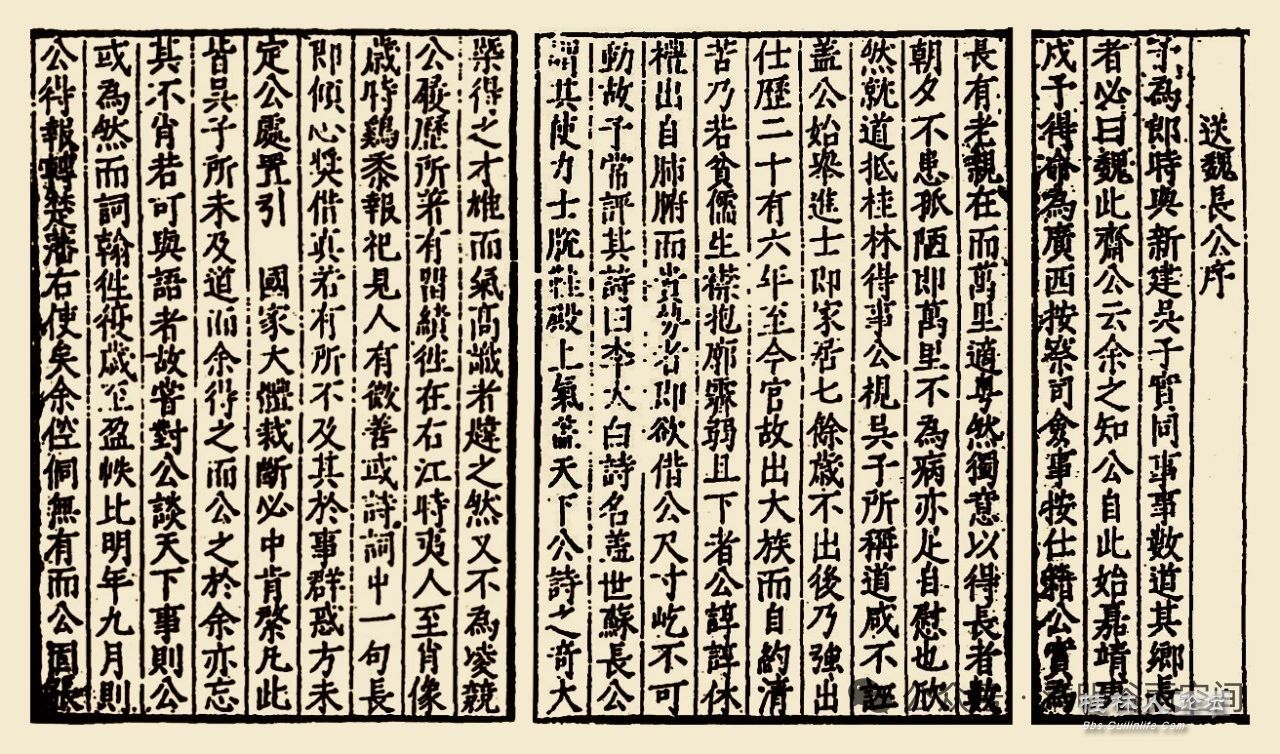 送魏長公序
予為郎時與新建吳子質問事事數道其鄉長
者必曰魏此齋公云余之知公自此始嘉靖
戊子得命為廣西按察司僉事按仕籍公實為
長有老親在而萬里適粵然獨意以得長者數
朝夕不患孤陋即萬里不為病亦足自慰也欣
然就道抵桂林得事公視吳子所稱道咸不誣
蓋公始舉進士即家居七餘歲不出後乃強出
仕歷二十有六年至今官故出大族而自約清
苦乃若貧儒生襟抱廓霽弱且下者公諄諄休
機出自肺腑而者即欲借公尺寸屹不可
動故予常評其詩曰李太白詩名蓋世蘇長公
謂其使力士脫靴殿上氣蓋天下公詩之奇大
槩得之才雄而氣高識者韙之然又不為凌競
公履歷所著有習績往在右江時夷人至肖像
歲時鷄黍報祀見人有微善或詩詞中一句長
即傾心獎借真若有所不及其於事群惑方未
定公處置引 國家大體裁斷必中肯綮凡此
皆吳子所未及道而余得之而公之於余亦忘
其不肖若可與語者故嘗對公談天下事則公
或為然而詞翰往復歲至盈帙比明年九月則
公得報轉楚藩右使矣余倥侗無有而公固
桂林人论坛
Bbs.Guilinlife.Com